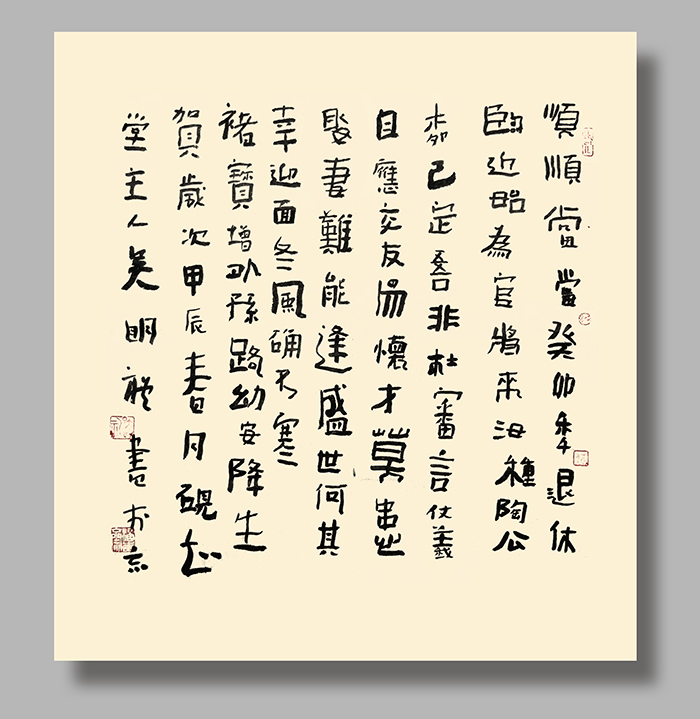 順順當當癸卯年退休
臨近為官將來種陶公
已定吾非杜審言仗義
自應交友易懷才莫
娶妻難能逢盛世何其
幸迎面冬風確不寒
褚寶增以孫路幼安降生
賀歲次甲辰春月硯
堂主人吳明書於京